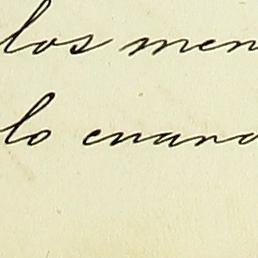 los men
lo cuand